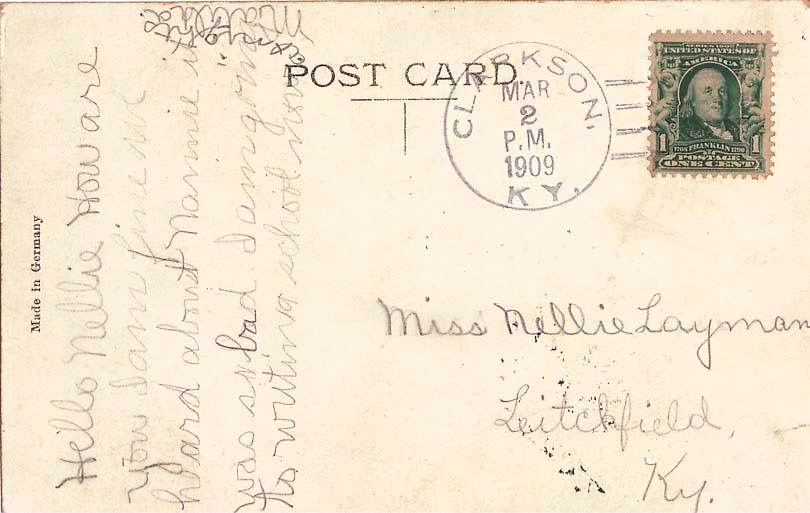 POST CARD.
CLARKSON,
MAR
2
P.M.
1909
KY.
SERIES 1902
UNITED STATES OF
AMERICA
1706 FRANKLIN 1790
1 POSTAGE 1
ONE CENT
Made in Germany
Hello Nellie How are
you I am fine
heard about Nannie it
was so bad I am going
to writing school now
Miss Nellie Layman
Leitchfield,
Ky.